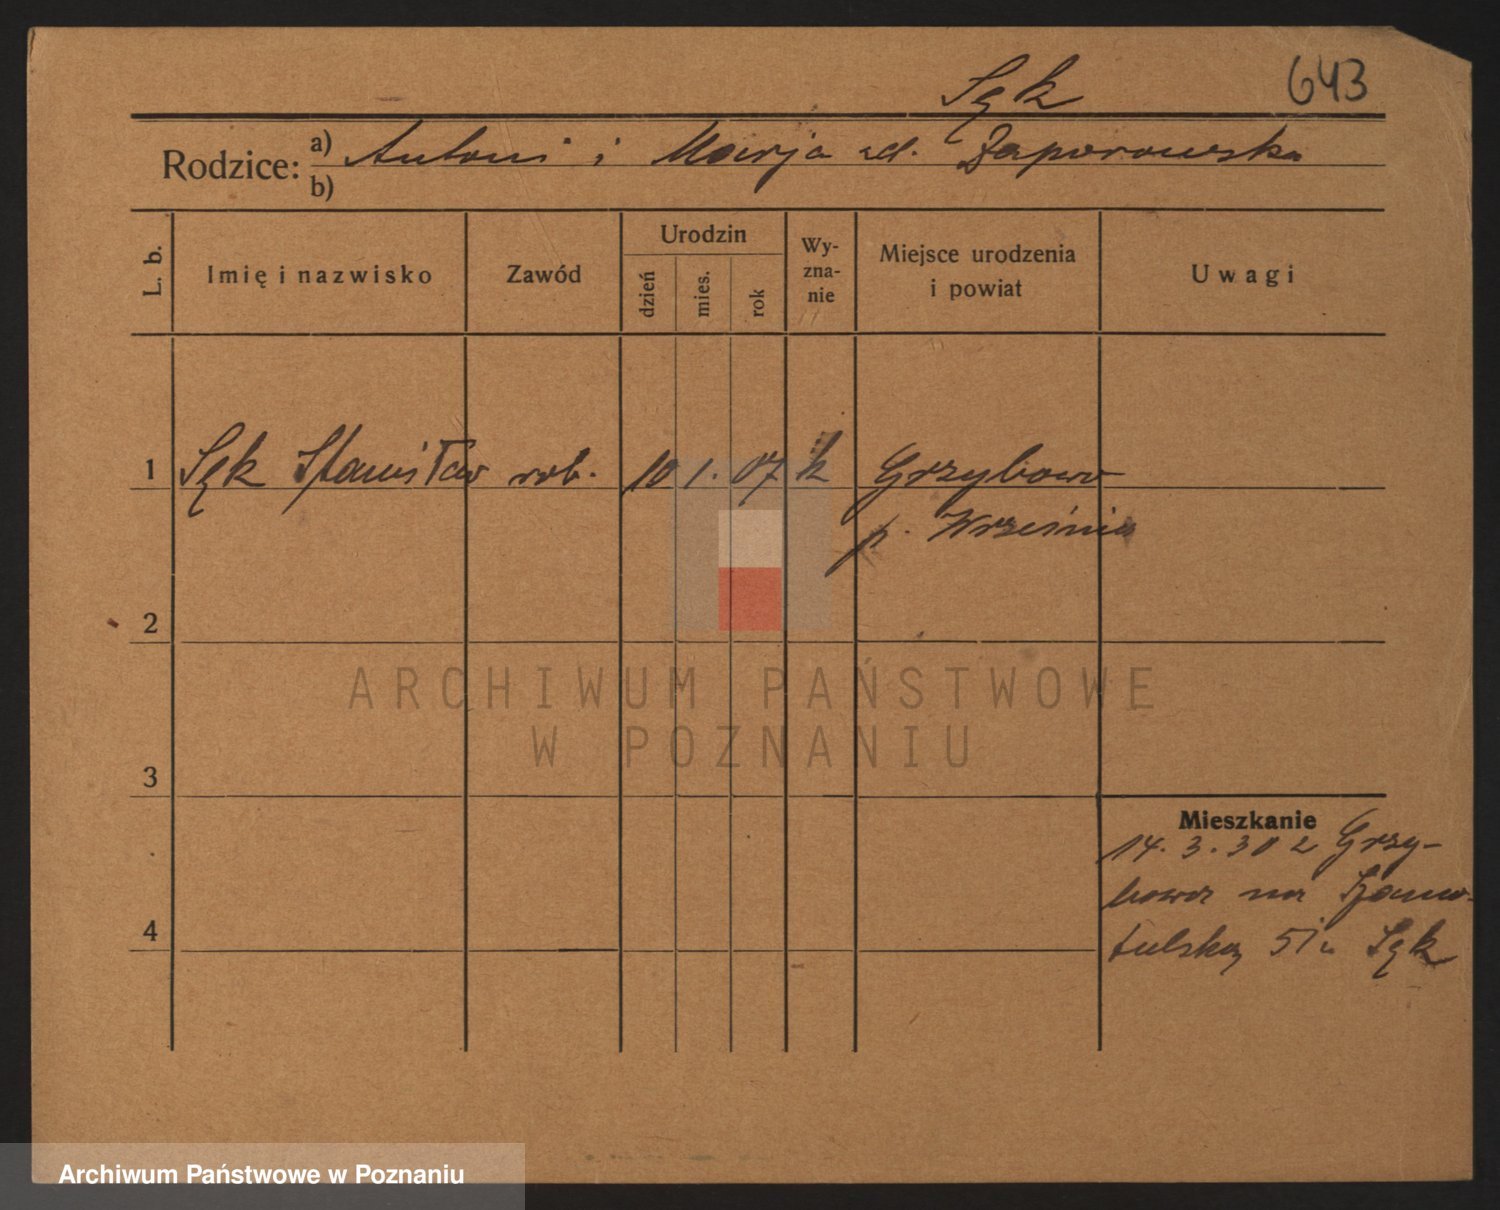 Sęk 643
Rodzice: a) Antoni i Marja zd. Zaporowska
b)
L. b. Imię i nazwisko Zawód Urodzin dzień mies. rok Wy-zna-nie Miejsce urodzenia i powiat Uwagi
1 Sęk Stanisław rob. 10 1. 07 k Grzybowo
p. Września
2
ARCHIWUM PAŃSTWOWE
W POZNANIU
3
Mieszkanie
14. 3. 30 z Grzy-
bowa na Szamo-
4 tulską 51 u Sęk
Archiwum Państwowe w Poznaniu